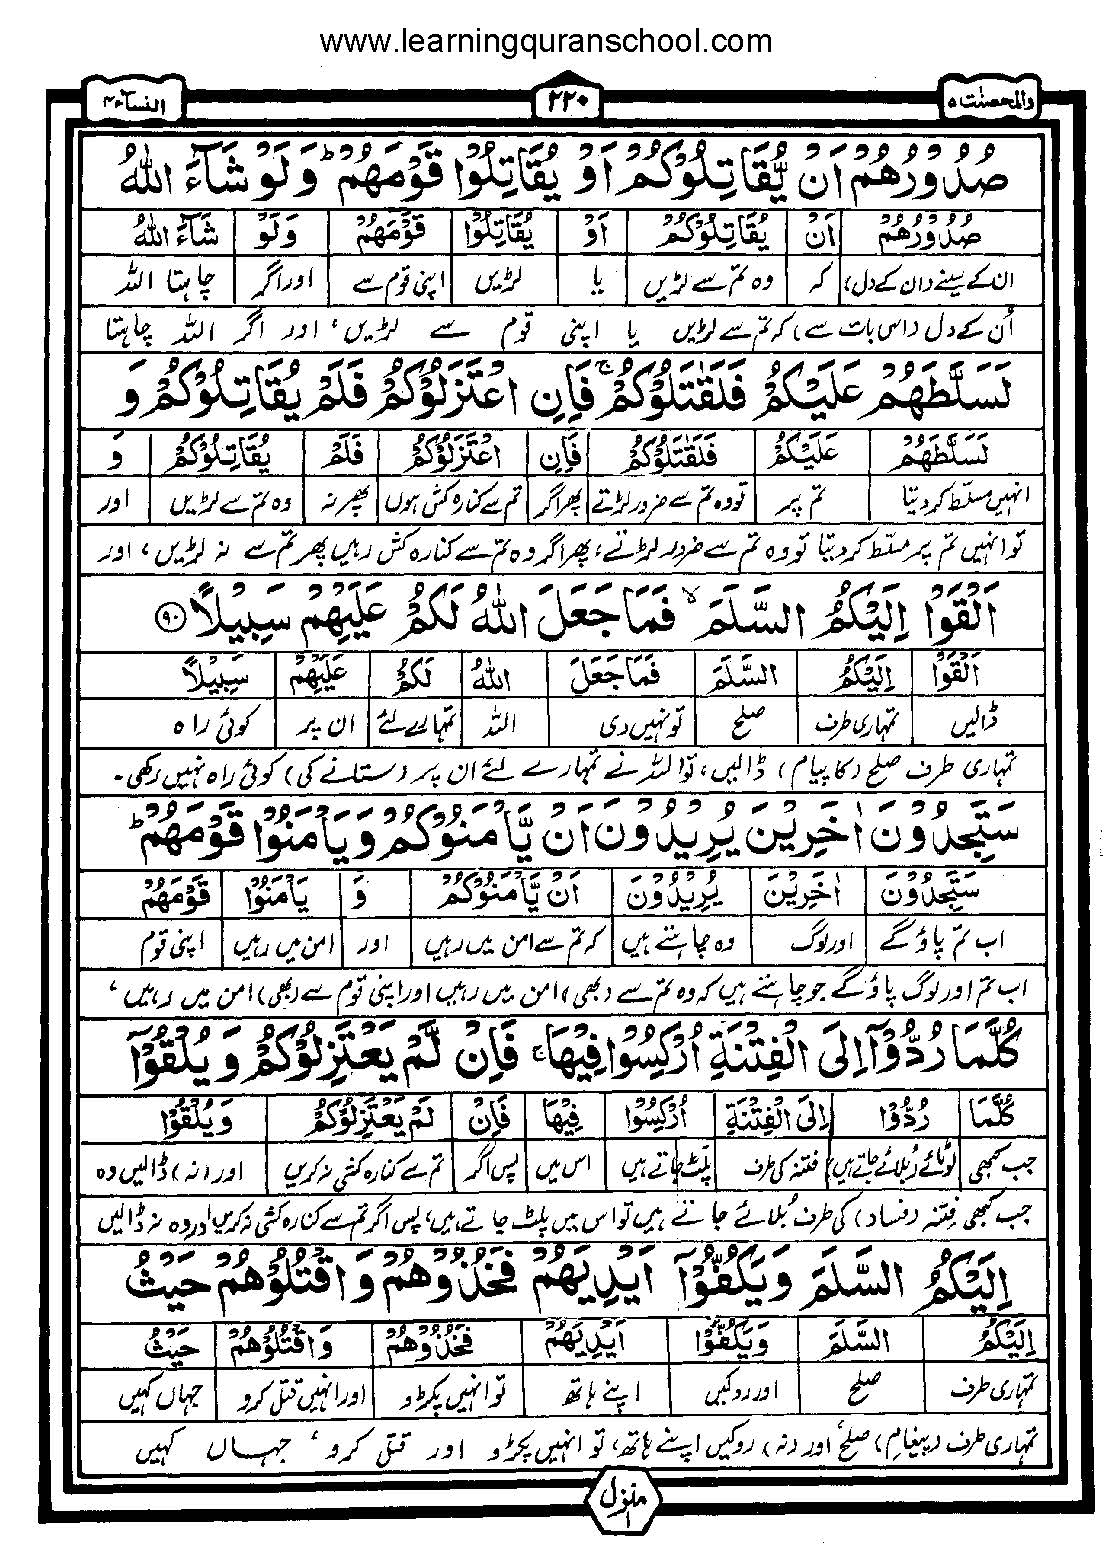 www.learningquranschool.com
والمحصنت ۵ ۲۲۰ النسآء ۴
صُدُوْرُهُمْ اَنْ يُّقَاتِلُوْكُمْ اَوْ يُقَاتِلُوْا قَوْمَهُمْ ؕ وَلَوْ شَآءَ اللّٰهُ
صُدُوْرُهُمْ اَنْ يُقَاتِلُوْكُمْ اَوْ يُقَاتِلُوْا قَوْمَهُمْ وَلَوْ شَآءَ اللّٰهُ
ان کے سینے (ان کے دل) کہ وہ تم سے لڑیں یا لڑیں اپنی قوم سے اور اگر چاہتا اللہ
اُن کے دل (اس بات سے) کہ تم سے لڑیں یا اپنی قوم سے لڑیں، اور اگر اللہ چاہتا
لَسَلَّطَهُمْ عَلَيْكُمْ فَلَقٰتَلُوْكُمْ ۚ فَاِنِ اعْتَزَلُوْكُمْ فَلَمْ يُقَاتِلُوْكُمْ وَ
لَسَلَّطَهُمْ عَلَيْكُمْ فَلَقٰتَلُوْكُمْ فَاِنِ اعْتَزَلُوْكُمْ فَلَمْ يُقَاتِلُوْكُمْ وَ
انہیں مسلط کر دیتا تم پر تو وہ تم سے ضرور لڑتے پھر اگر تم سے کنارہ کش ہوں پھر نہ وہ تم سے لڑیں اور
تو انہیں تم پر مسلط کر دیتا تو وہ تم سے ضرور لڑتے، پھر اگر وہ تم سے کنارہ کش رہیں پھر تم سے نہ لڑیں، اور
اَلْقَوْا اِلَيْكُمُ السَّلَمَ ۙ فَمَا جَعَلَ اللّٰهُ لَكُمْ عَلَيْهِمْ سَبِيْلًا ۹۰
اَلْقَوْا اِلَيْكُمُ السَّلَمَ فَمَا جَعَلَ اللّٰهُ لَكُمْ عَلَيْهِمْ سَبِيْلًا
ڈالیں تمہاری طرف صلح تو نہیں دی اللہ تمہارے لئے ان پر کوئی راہ
تمہاری طرف صلح (کا پیام) ڈالیں، تو اللہ نے تمہارے لئے ان پر (ستانے کی) کوئی راہ نہیں رکھی۔
سَتَجِدُوْنَ اٰخَرِيْنَ يُرِيْدُوْنَ اَنْ يَّاْمَنُوْكُمْ وَيَاْمَنُوْا قَوْمَهُمْ ؕ
سَتَجِدُوْنَ اٰخَرِيْنَ يُرِيْدُوْنَ اَنْ يَّاْمَنُوْكُمْ وَ يَاْمَنُوْا قَوْمَهُمْ
اب تم پاؤ گے اور لوگ وہ چاہتے ہیں کہ تم سے امن میں رہیں اور امن میں رہیں اپنی قوم
اب تم اور لوگ پاؤ گے جو چاہتے ہیں کہ وہ تم سے (بھی) امن میں رہیں اور اپنی قوم سے (بھی) امن میں رہیں،
كُلَّمَا رُدُّوْٓا اِلَى الْفِتْنَةِ اُرْكِسُوْا فِيْهَا ۚ فَاِنْ لَّمْ يَعْتَزِلُوْكُمْ وَيُلْقُوْٓا
كُلَّمَا رُدُّوْٓا اِلَى الْفِتْنَةِ اُرْكِسُوْا فِيْهَا فَاِنْ لَّمْ يَعْتَزِلُوْكُمْ وَيُلْقُوْٓا
جب کبھی لوٹائے (بلائے جاتے ہیں) فتنہ کی طرف پلٹ جاتے ہیں اس میں پس اگر تم سے کنارہ کشی نہ کریں اور (نہ) ڈالیں وہ
جب کبھی فتنہ (فساد) کی طرف بُلائے جاتے ہیں تو اس میں پلٹ جاتے ہیں، پس اگر تم سے کنارہ کشی نہ کریں اور وہ نہ ڈالیں
اِلَيْكُمُ السَّلَمَ وَيَكُفُّوْٓا اَيْدِيَهُمْ فَخُذُوْهُمْ وَاقْتُلُوْهُمْ حَيْثُ
اِلَيْكُمُ السَّلَمَ وَيَكُفُّوْٓا اَيْدِيَهُمْ فَخُذُوْهُمْ وَاقْتُلُوْهُمْ حَيْثُ
تمہاری طرف صلح اور روکیں اپنے ہاتھ تو انہیں پکڑو اور انہیں قتل کرو جہاں کہیں
تمہاری طرف (پیغام) صلح اور (نہ) روکیں اپنے ہاتھ، تو انہیں پکڑو اور قتل کرو، جہاں کہیں
منزل ۱